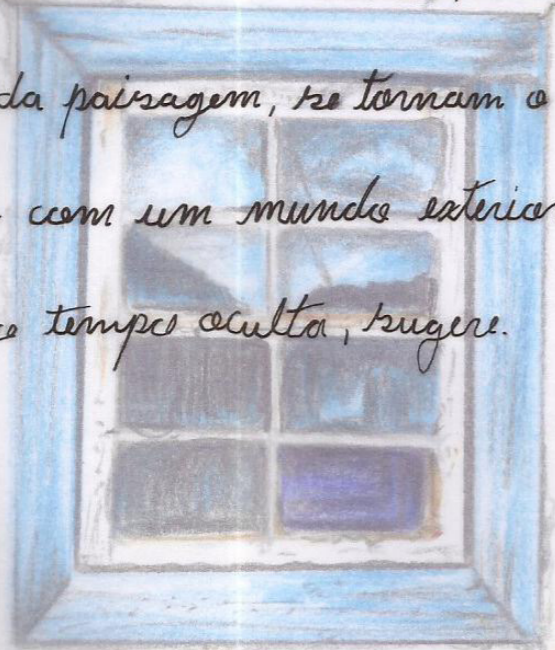 da paisagem, se tornam o
com um mundo exterior
tempo oculta, sugere.